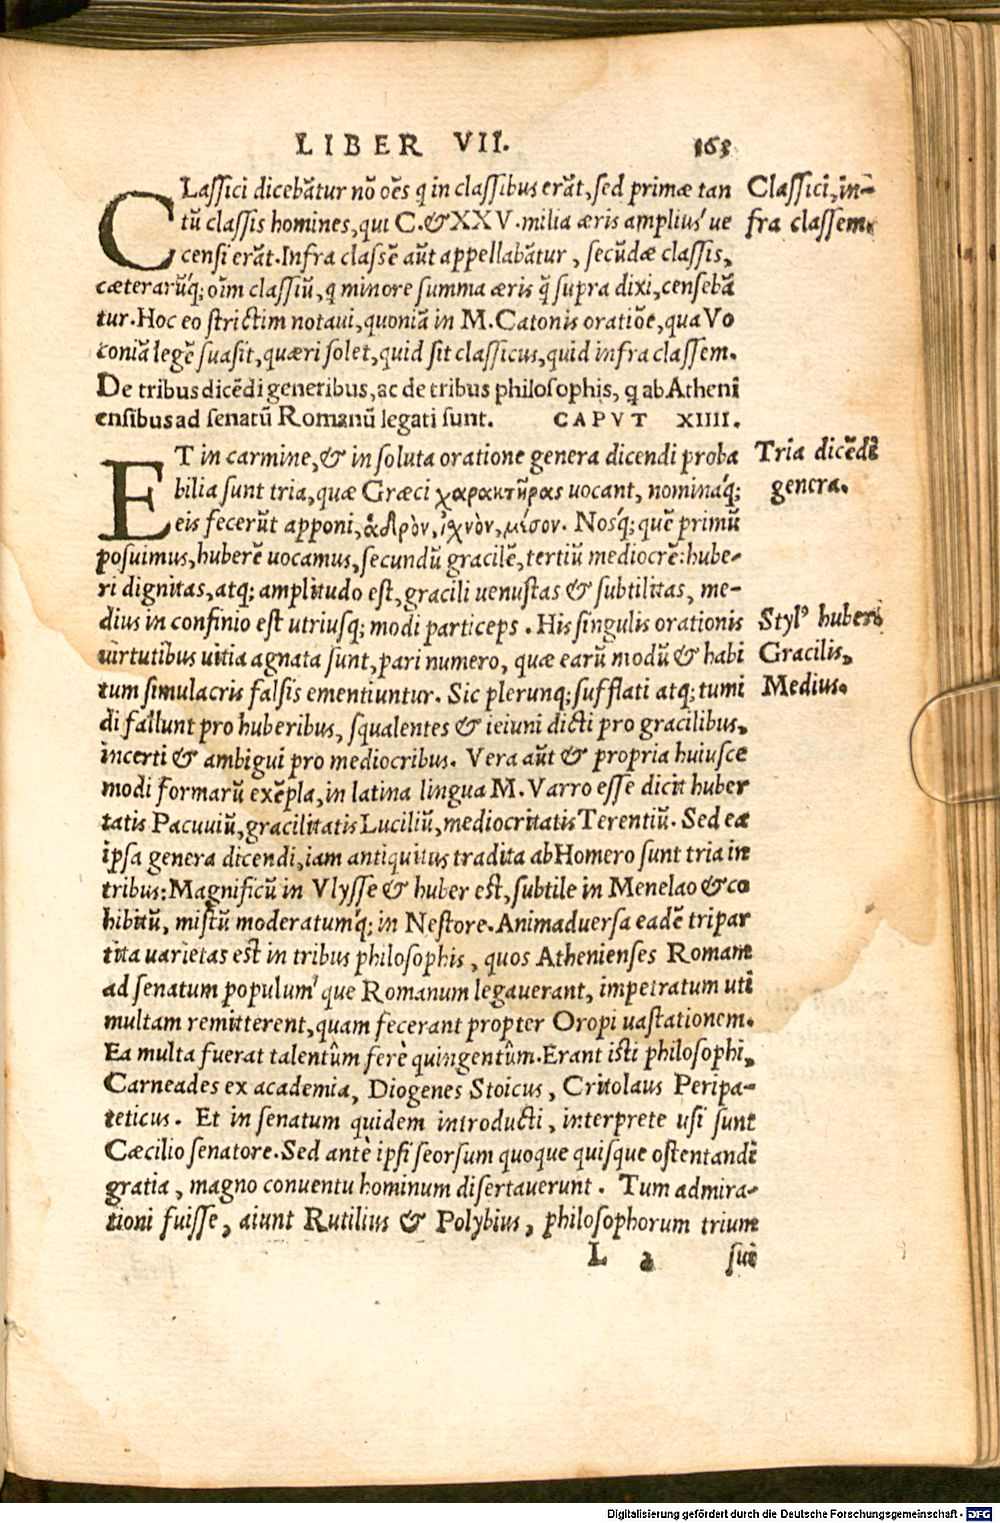 LIBER VII. 163
CLassici dicebãtur nõ oẽs q in classibus erãt, sed primæ tan
tũ classis homines, qui C. & XXV. milia æris amplius' ve
censi erãt. Infra classẽ aũt appellabãtur, secũdæ classis,
cæterarũq́; oĩm classiũ, q minore summa æris q̃ supra dixi, censebã
tur. Hoc eo strictim notavi, quoniã in M. Catonis oratiõe, qua Vo
coniã legẽ suasit, quæri solet, quid sit classicus, quid infra classem.
Classici, in-
fra classem.
De tribus dicẽdi generibus, ac de tribus philosophis, q ab Atheni
ensibus ad senatũ Romanũ legati sunt. CAPVT XIIII.
ET in carmine, & in soluta oratione genera dicendi proba
bilia sunt tria, quæ Græci χαρακτῆρας vocant, nominaq́;
eis fecerũt apponi, ἁδρὸν, ἰχνὸν, μέσον. Nosq́; quẽ primũ
posuimus, huberẽ vocamus, secundũ gracilẽ, tertiũ mediocrẽ: hube-
ri dignitas, atq; amplitudo est, gracili venustas & subtilitas, me-
dius in confinio est utriusq; modi particeps. His singulis orationis
virtutibus vitia agnata sunt, pari numero, quæ earũ modũ & habi
tum simulacris falsis ementiuntur. Sic plerunq; sufflati atq; tumi
di fallunt pro huberibus, squalentes & ieiuni dicti pro gracilibus,
incerti & ambigui pro mediocribus. Vera aũt & propria huiusce
modi formarũ exẽpla, in latina lingua M. Varro esse dicit huber
tatis Pacuviũ, gracilitatis Luciliũ, mediocritatis Terentiũ. Sed ea
ipsa genera dicendi, iam antiquitus tradita ab Homero sunt tria in
tribus: Magnificũ in Vlysse & huber est, subtile in Menelao & co
hibitũ, mistũ moderatumq́; in Nestore. Animadversa eadẽ tripar
tita varietas est in tribus philosophis, quos Athenienses Romam
ad senatum populum' que Romanum legaverant, impetratum uti
multam remitterent, quam fecerant propter Oropi vastationem.
Ea multa fuerat talentûm ferè quingentûm. Erant isti philosophi,
Carneades ex academia, Diogenes Stoicus, Critolaus Peripa-
teticus. Et in senatum quidem introducti, interprete usi sunt
Cæcilio senatore. Sed antè ipsi seorsum quoque quisque ostentandi
gratia, magno conventu hominum disertaverunt. Tum admira-
tioni fuisse, aiunt Rutilius & Polybius, philosophorum trium
Tria dicẽdi
genera.
Styl' huberi
Gracilis,
Medius.
L 2 sui
Digitalisierung gefördert durch die Deutsche Forschungsgemeinschaft - DFG